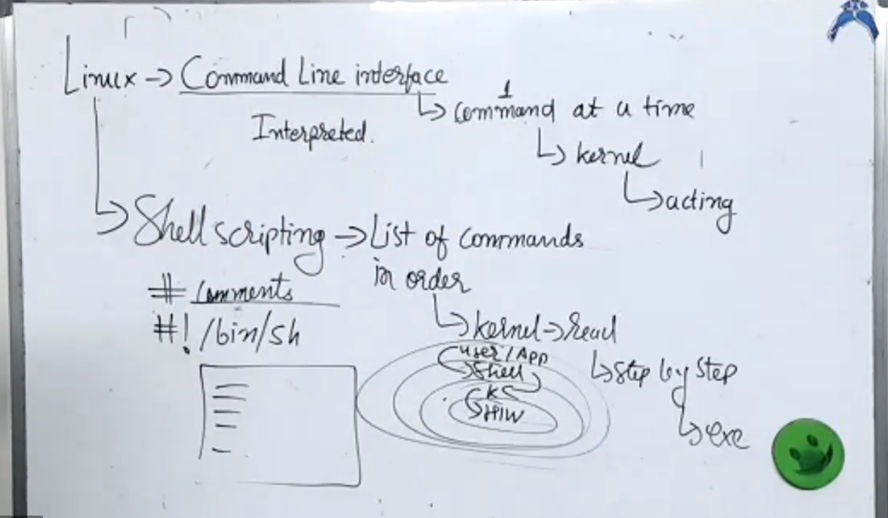 Linux → Command Line interface
↳ 1 command at a time
Interpreted.
↳ kernel
↳ acting
↳ Shell scripting → List of commands
in order
# comments
#! /bin/sh
↳ kernel → read
↳ step by step
↳ exe
user/App
Shell
K
H/W